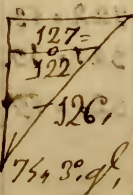 127=
122
126,
75, 3°. gl.